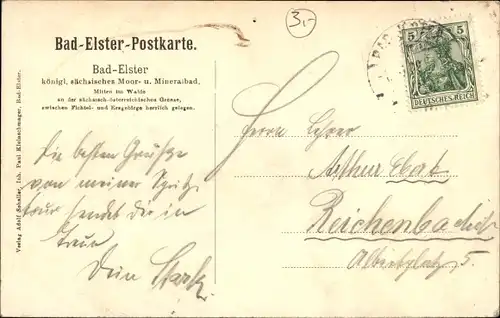 3,-
Bad-Elster-Postkarte.
Bad-Elster
königl. sächsisches Moor- u. Mineralbad,
Mitten im Walde
an der sächsisch-österreichischen Grenze,
zwischen Fichtel- und Erzgebirge herrlich gelegen.
Verlag Adolf Schaller, Inh. Paul Kleinschmager, Bad-Elster.
5 5
DEUTSCHES REICH
Die besten Grüße
von meiner Spritz
tour sendet Dir in
Treue
Dein
Herrn Lehrer
Arthur
Reichenbach i/
Albertplatz 5.